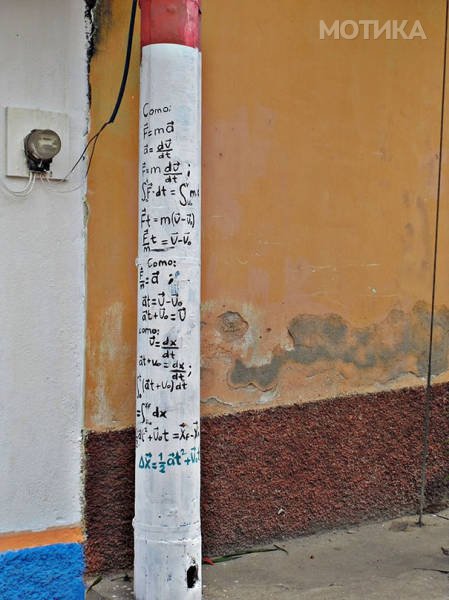 МОТИКА
Como:
F⃗=ma⃗
a⃗=dv⃗/dt
F⃗=m dv⃗/dt ;
∫F⃗·dt=∫m
F⃗t=m(v⃗-v⃗₀)
F⃗t/m=v⃗-v⃗₀
Como:
F⃗/m=a⃗ ;
a⃗t=v⃗-v⃗₀
a⃗t+v⃗₀=v⃗
Como:
v⃗=dx⃗/dt
a⃗t+v₀=dx⃗/dt ;
∫(a⃗t+v₀)dt
=∫dx
t²+v⃗₀t=x⃗F-x⃗
Δx⃗=½a⃗t²+v⃗₀t